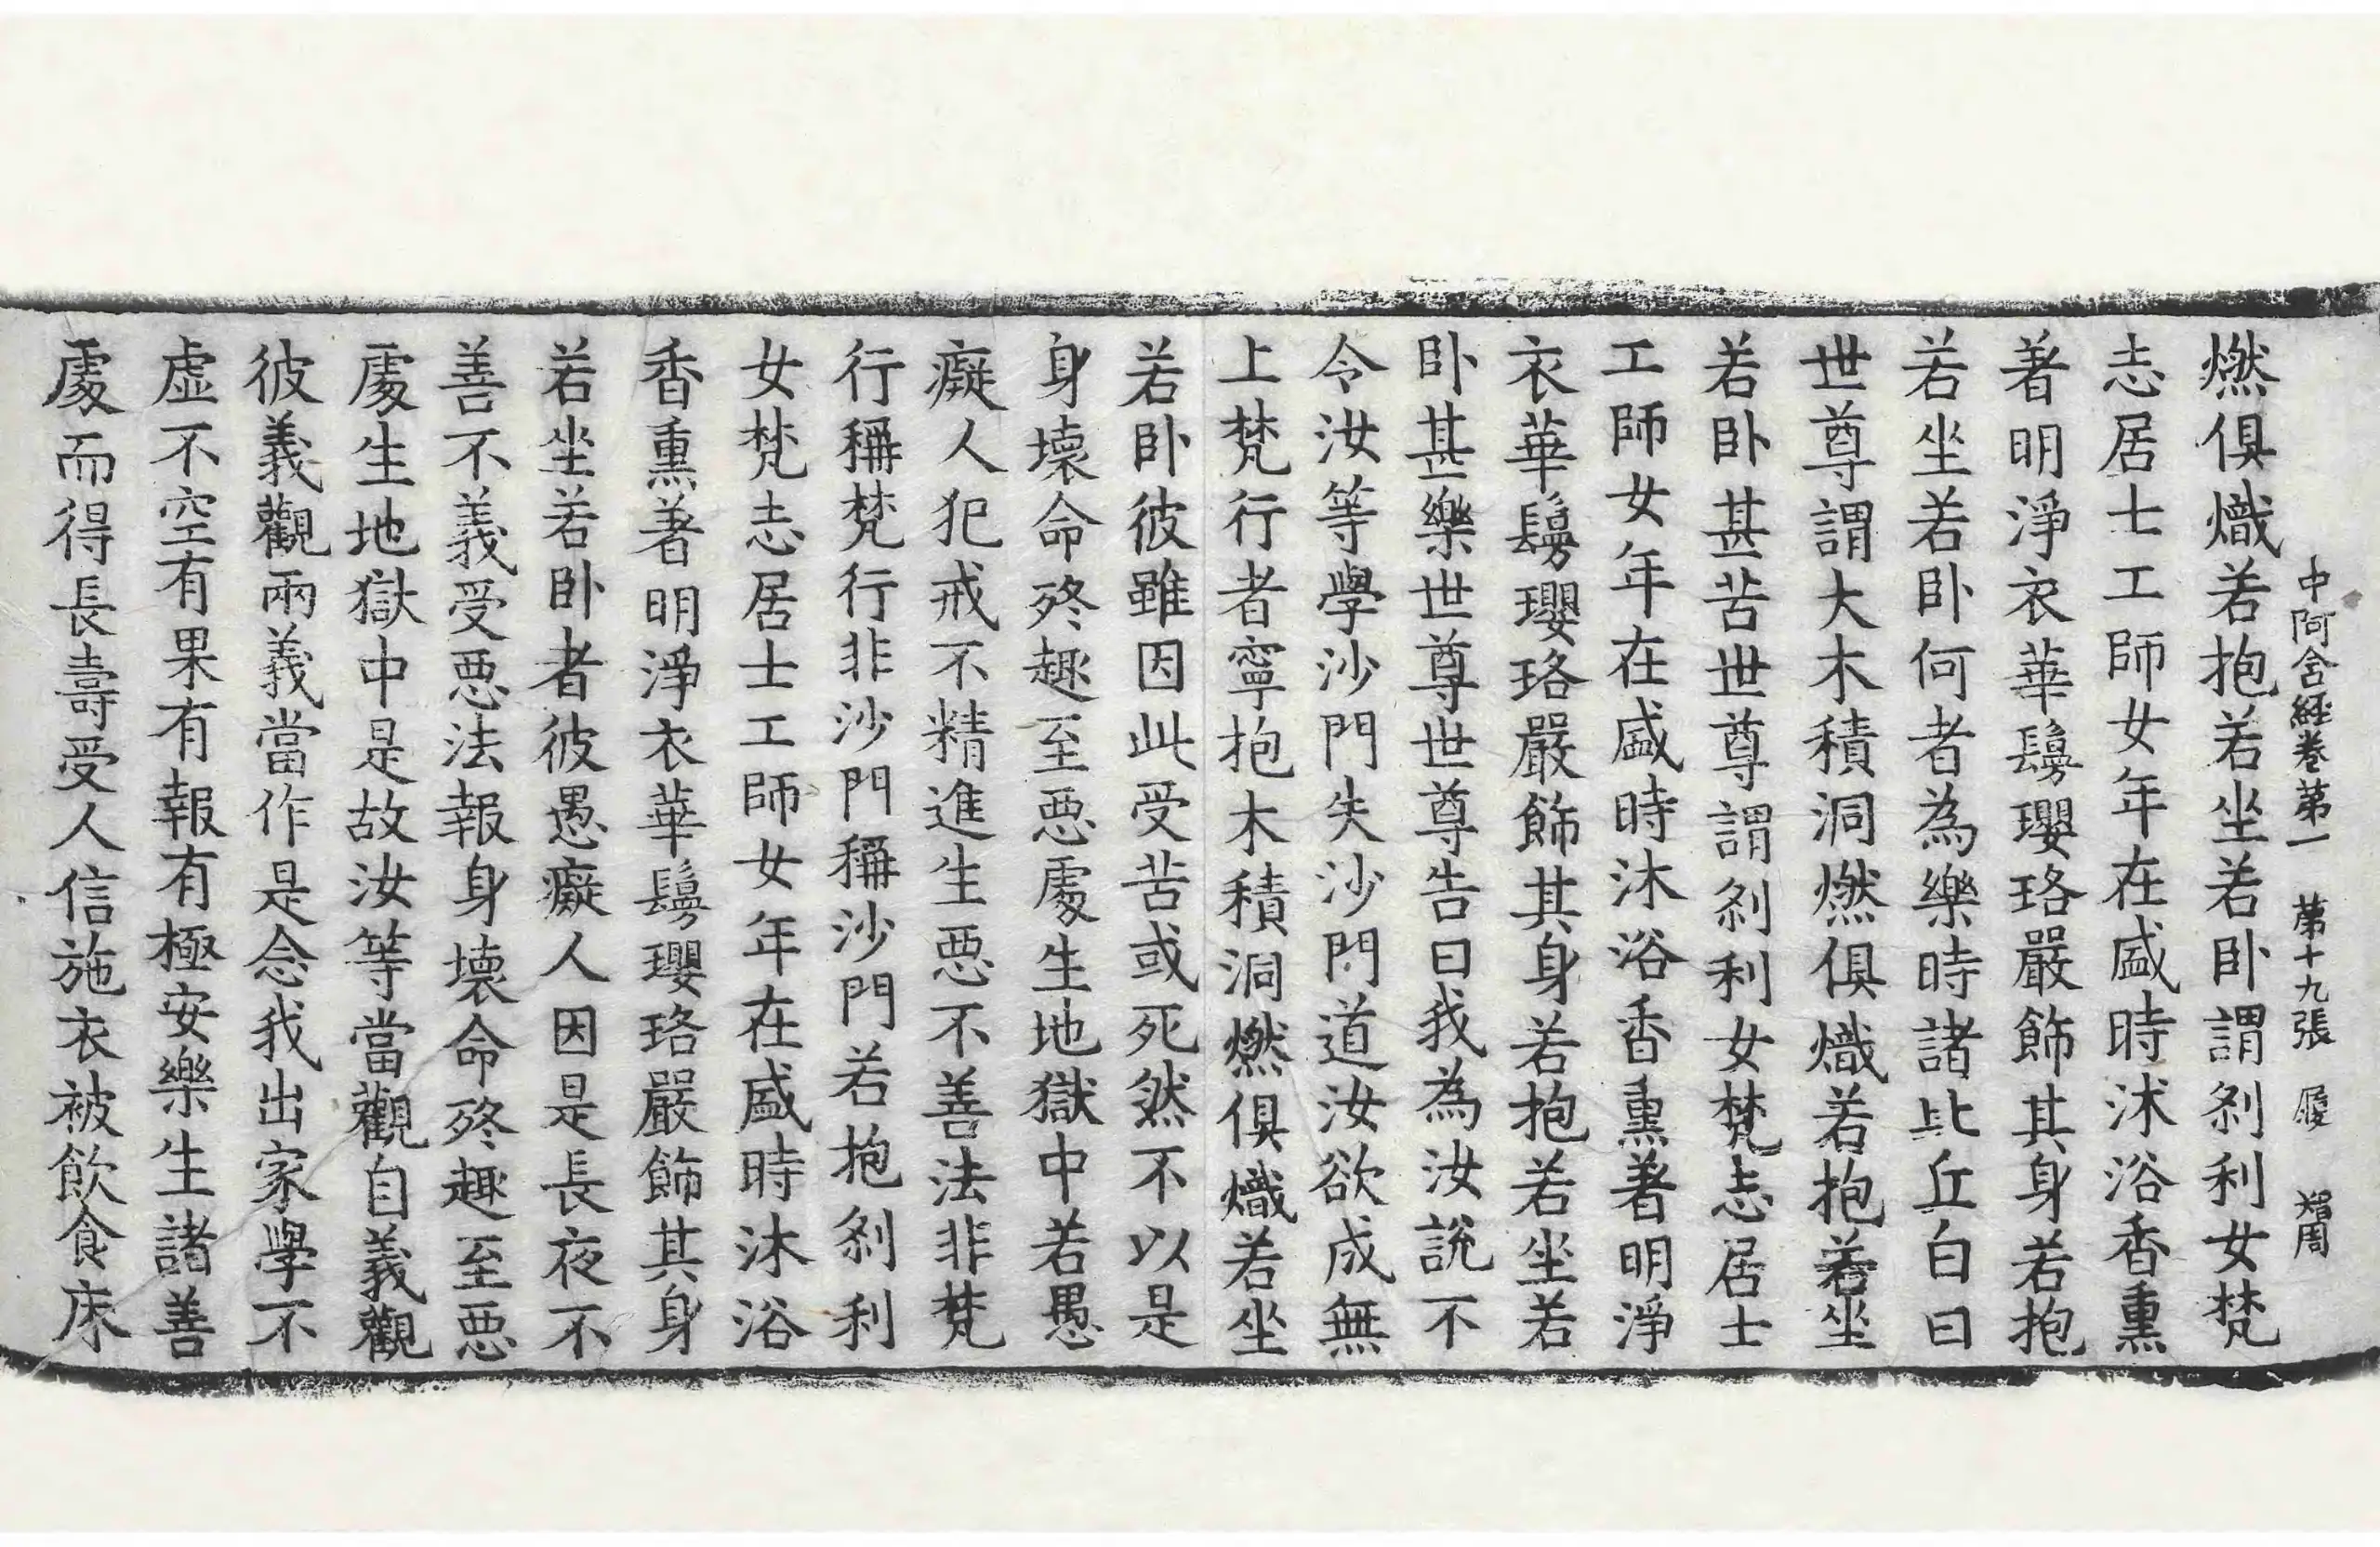 中阿含経卷第一 苐十九張 履 㛮周
燃俱熾若抱若坐若卧謂剎利女梵
志居士工師女年在盛時沐浴香熏
著明淨衣華鬘瓔珞嚴飾其身若抱
若坐若卧何者為樂時諸比丘白曰
世尊謂大木積洞燃俱熾若抱若坐
若卧甚苦世尊謂剎利女梵志居士
工師女年在盛時沐浴香熏著明淨
衣華鬘瓔珞嚴飾其身若抱若坐若
卧甚樂世尊世尊告曰我為汝說不
令汝等學沙門失沙門道汝欲成無
上梵行者寧抱木積洞燃俱熾若坐
若卧彼雖因此受苦或死然不以是
身壞命終趣至惡處生地獄中若愚
癡人犯戒不精進生惡不善法非梵
行稱梵行非沙門稱沙門若抱剎利
女梵志居士工師女年在盛時沐浴
香熏著明淨衣華鬘瓔珞嚴飾其身
若坐若卧者彼愚癡人因是長夜不
善不義受惡法報身壞命終趣至惡
處生地獄中是故汝等當觀自義觀
彼義觀兩義當作是念我出家學不
虛不空有果有報有極安樂生諸善
處而得長壽受人信施衣被飲食床